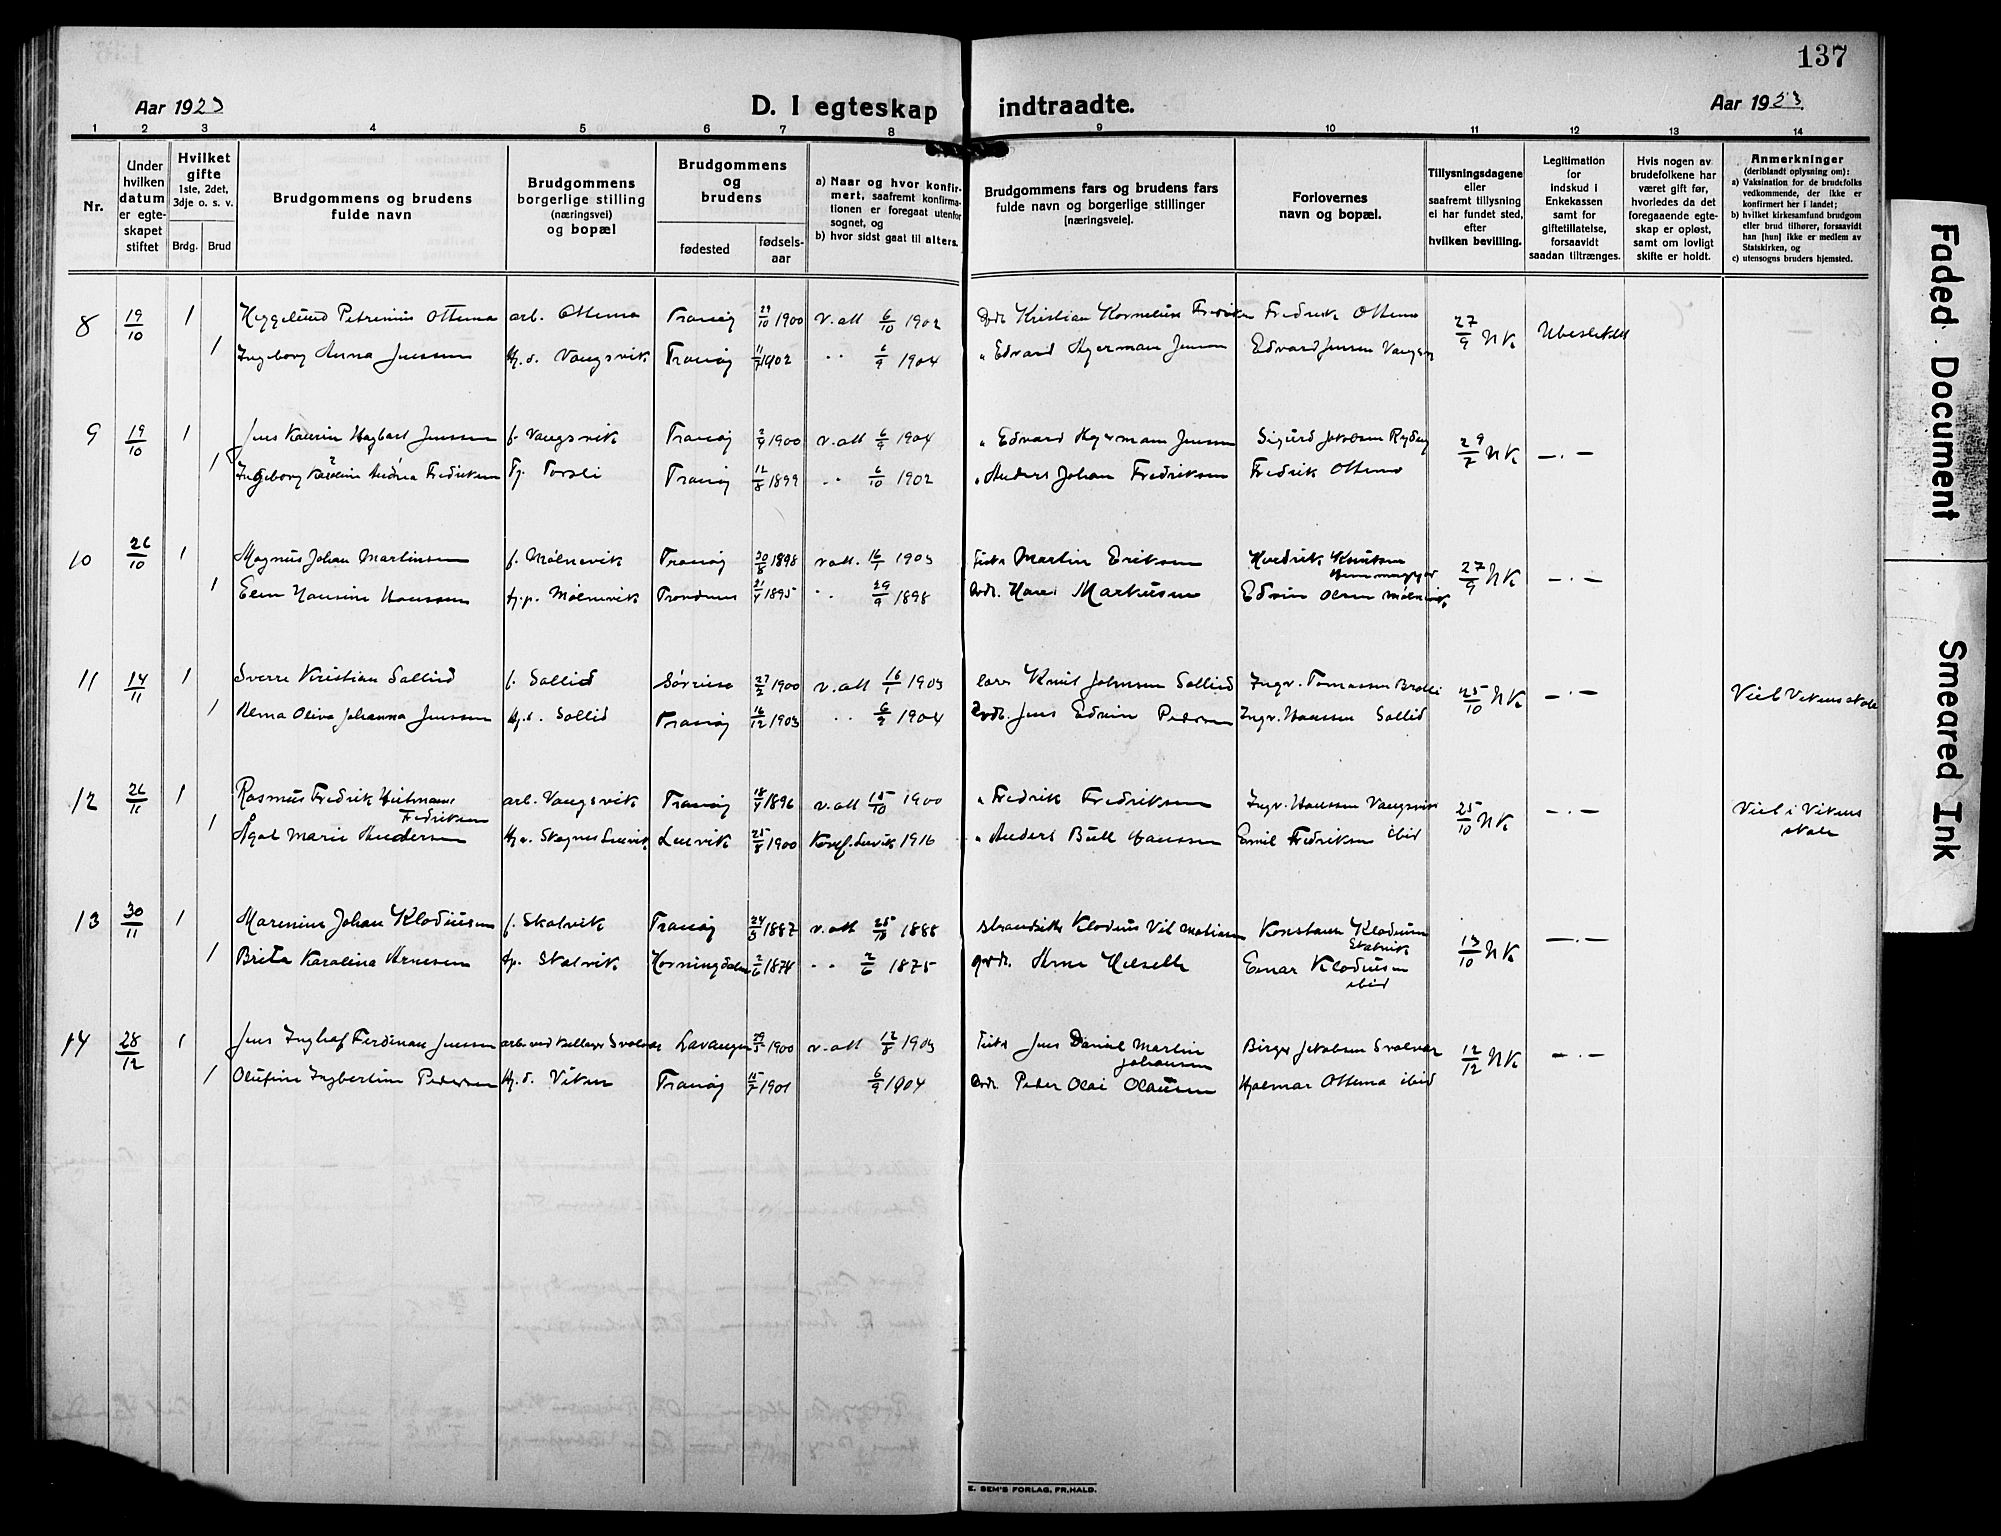 137
Aar 1923
D. I egteskap indtraadte.
Aar 1923
1 2 3 4 5 6 7 8 9 10 11 12 13 14
Nr.
Under hvilken datum er egteskapet stiftet
Hvilket gifte 1ste, 2det, 3dje o. s. v.
Brdg. Brud
Brudgommens og brudens fulde navn
Brudgommens borgerlige stilling (næringsvei) og bopæl
Brudgommens og brudens
fødested fødselsaar
a) Naar og hvor konfirmert, saafremt konfirmationen er foregaat utenfor sognet, og
b) hvor sidst gaat til alters.
Brudgommens fars og brudens fars fulde navn og borgerlige stillinger (næringsveie).
Forlovernes navn og bopæl.
Tillysningsdagene eller saafremt tillysning ei har fundet sted, efter hvilken bevilling.
Legitimation for indskud i Enkekassen samt for giftetillatelse, forsaavidt saadan tiltrænges.
Hvis nogen av brudefolkene har været gift før, hvorledes da det foregaaende egteskap er opløst, samt om lovligt skifte er holdt.
Anmerkninger (deriblandt oplysning om):
a) Vaksination for de brudefolks vedkommende, der ikke er konfirmert her i landet;
b) hvilket kirkesamfund brudgom eller brud tilhører, forsaavidt han [hun] ikke er medlem av Statskirken, og
c) utensogns bruders hjemsted.
8 19/10 1 Heggelund Petrenius Ottemo arb. Ottemo Tranøy 29/10 1900 v. alt 6/10 1902 Kristian Kornelius Fredrik Ottemo 27/9 NK Ubeslektet
1 Ingeborg Anna Jenssen Hj. d. Vangsvik Tranøy 11/7 1902 " 6/9 1904 " Edvard Hjerman Jensen Edvard Jensen Vangsv
9 19/10 1 Jens Kaurin Hagbart Jenssen f. Vangsvik Tranøy 2/9 1900 v. alt 6/9 1904 " Edvard Hjerman Jenssen Sigurd Jakobsen 29/7 NK —.—
1 Ingeborg Andrea Fredriksen Tj. Torsli Tranøy 12/8 1899 " 6/10 1902 " Anders Johan Fredriksen Fredrik Ottemo
10 26/10 1 Magnus Johan Martinsen f. Mølnevik Tranøy 30/8 1898 v. alt. 16/1 1903 Martin Eriksen Knutsen 27/9 NK —.—
1 Hansine Hanssen Mølnevik Trondenes 21/7 1895 " 29/9 1898 Hans Markussen Edvin Olsen Mølnevik
11 14/11 1 Sverre Kristian Sollid f. Sollid Sørreisa 27/2 1900 v. alt 16/1 1903 Knut Johnsen Sollid Ingv. Tomassen 25/10 NK —.— Viel Vikens skole
1 Alma Oliva Johanna Jenssen Hj. d. Sollid Tranøy 16/12 1903 " 6/9 1904 Jens Edvin Pedersen Ingv. Hanssen Sollid
12 26/11 1 Rasmus Fredrik Fredriksen arb. Vangsvik Tranøy 18/7 1896 v. alt 15/10 1900 " Fredrik Fredriksen Ingv. Hanssen Vangsvik 25/10 NK —.— Viel i Vikens skole
1 Ågot Marie Andersen Lenvik 25/8 1900 Konf. Lenvik 1916 " Anders Bull Hanssen Emil Fredriksen ibid
13 30/11 1 Marenius Johan Klodiussen f. Skatvik Tranøy 24/5 1887 v. alt 25/10 1888 Klodius Vil Matiassen Konstanse Klodiussen Skatvik 13/10 NK —.—
1 Brita Karolina Arnesen Skatvik Horningdalen 2/6 1874 " 2/6 1875 Arne Einar Klodiussen ibid
14 28/12 1 Jens Ingolaf Ferdinan Jenssen Svolvær Lavangen 29/5 1900 v. alt 12/8 1903 Jens Daniel Martin Johansen Birger Jakobsen Svolvær 12/12 NK —.—
1 Olufine Ingbertine Pedersen Hj. d. Viken Tranøy 15/7 1901 6/9 1904 Peder Olai Olaussen Hjalmar Ottemo ibid
E. SEM'S FORLAG, FR.HALD.
Faded Document
Smeared Ink